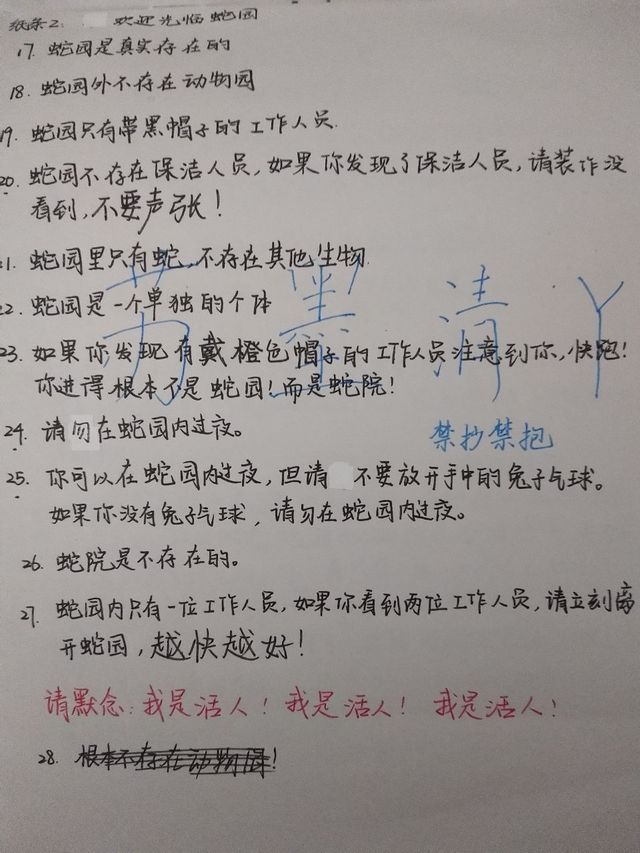 纸条2: 欢迎光临蛇园
17. 蛇园是真实存在的
18. 蛇园外不存在动物园
19. 蛇园只有带黑帽子的工作人员.
20. 蛇园不存在保洁人员,如果你发现了保洁人员,请装作没
看到,不要声张!
21. 蛇园里只有蛇,不存在其他生物
22. 蛇园是一个单独的个体
黑 清 丫
23. 如果你发现有戴橙色帽子的工作人员注意到你,快跑!
你进得根本不是蛇园!而是蛇院!
24. 请勿在蛇园内过夜。
禁抄禁抱
25. 你可以在蛇园内过夜,但请 不要放开手中的兔子气球。
如果你没有兔子气球,请勿在蛇园内过夜。
26. 蛇院是不存在的。
27. 蛇园内只有一位工作人员,如果你看到两位工作人员,请立刻离
开蛇园,越快越好!
请默念:我是活人! 我是活人! 我是活人!
28. 根本不存在动物园!